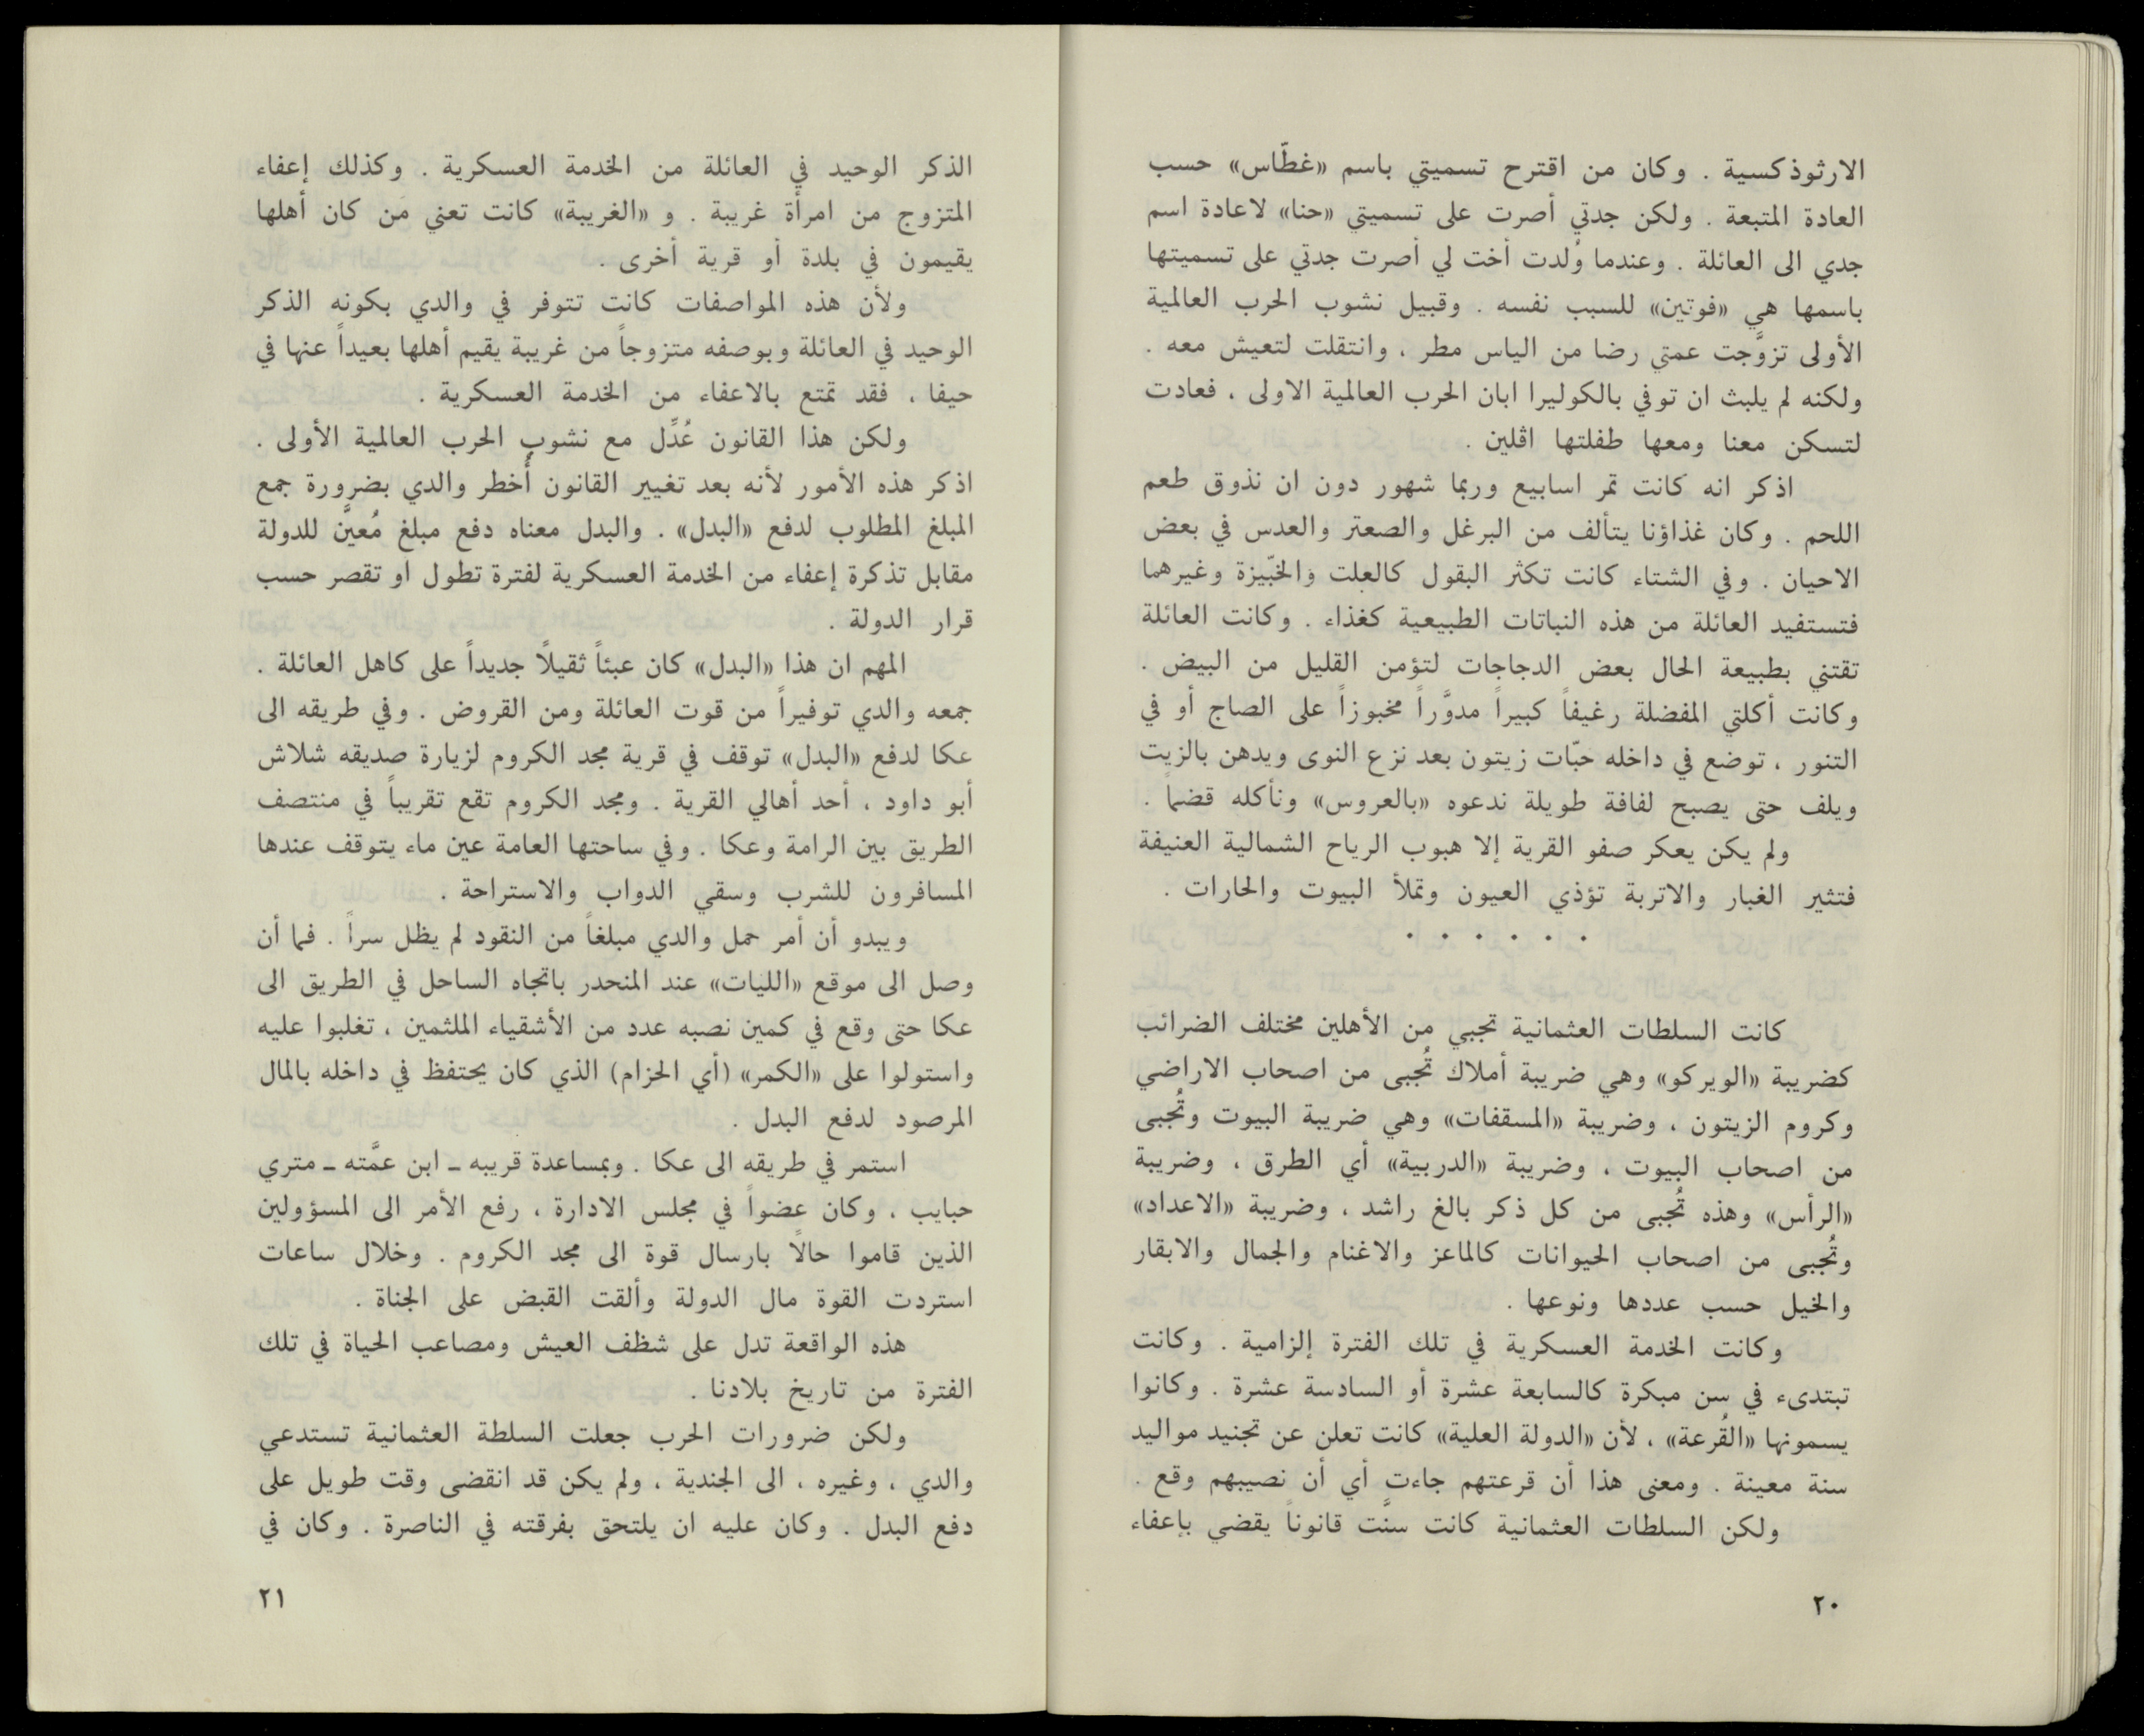 الارثوذكسية . وكان من اقترح تسميتي باسم «غطّاس» حسب
العادة المتبعة . ولكن جدتي أصرت على تسميتي «حنا» لاعادة اسم
جدي الى العائلة . وعندما وُلدت أخت لي أصرت جدتي على تسميتها
باسمها هي «فوتين» للسبب نفسه . وقبيل نشوب الحرب العالمية
الأولى تزوَّجت عمتي رضا من الياس مطر ، وانتقلت لتعيش معه .
ولكنه لم يلبث ان توفي بالكوليرا ابان الحرب العالمية الاولى ، فعادت
لتسكن معنا ومعها طفلتها اڤلين .
اذكر انه كانت تمر اسابيع وربما شهور دون ان نذوق طعم
اللحم . وكان غذاؤنا يتألف من البرغل والصعتر والعدس في بعض
الاحيان . وفي الشتاء كانت تكثر البقول كالعلت والخبّيزة وغيرهما
فتستفيد العائلة من هذه النباتات الطبيعية كغذاء . وكانت العائلة
تقتني بطبيعة الحال بعض الدجاجات لتؤمن القليل من البيض .
وكانت أكلتي المفضلة رغيفاً كبيراً مدوَّراً مخبوزاً على الصاج أو في
التنور ، توضع في داخله حبّات زيتون بعد نزع النوى ويدهن بالزيت
ويلف حتى يصبح لفافة طويلة ندعوه «بالعروس» ونأكله قضماً .
ولم يكن يعكر صفو القرية إلا هبوب الرياح الشمالية العنيفة
فتثير الغبار والاتربة تؤذي العيون وتملأ البيوت والحارات .
. . . . . .
كانت السلطات العثمانية تجبي من الأهلين مختلف الضرائب
كضريبة «الويركو» وهي ضريبة أملاك تُجبى من اصحاب الاراضي
وكروم الزيتون ، وضريبة «المسقفات» وهي ضريبة البيوت وتُجبى
من اصحاب البيوت ، وضريبة «الدربية» أي الطرق ، وضريبة
«الرأس» وهذه تُجبى من كل ذكر بالغ راشد ، وضريبة «الاعداد»
وتُجبى من اصحاب الحيوانات كالماعز والاغنام والجمال والابقار
والخيل حسب عددها ونوعها .
وكانت الخدمة العسكرية في تلك الفترة إلزامية . وكانت
تبتدىء في سن مبكرة كالسابعة عشرة أو السادسة عشرة . وكانوا
يسمونها «القُرعة» ، لأن «الدولة العلية» كانت تعلن عن تجنيد مواليد
سنة معينة . ومعنى هذا أن قرعتهم جاءت أي أن نصيبهم وقع .
ولكن السلطات العثمانية كانت سنَّت قانوناً يقضي بإعفاء
٢٠
الذكر الوحيد في العائلة من الخدمة العسكرية . وكذلك إعفاء
المتزوج من امرأة غريبة . و «الغريبة» كانت تعني مَن كان أهلها
يقيمون في بلدة أو قرية أخرى .
ولأن هذه المواصفات كانت تتوفر في والدي بكونه الذكر
الوحيد في العائلة وبوصفه متزوجاً من غريبة يقيم أهلها بعيداً عنها في
حيفا ، فقد تمتع بالاعفاء من الخدمة العسكرية .
ولكن هذا القانون عُدِّل مع نشوب الحرب العالمية الأولى .
اذكر هذه الأمور لأنه بعد تغيير القانون أُخطر والدي بضرورة جمع
المبلغ المطلوب لدفع «البدل» . والبدل معناه دفع مبلغ مُعيَّن للدولة
مقابل تذكرة إعفاء من الخدمة العسكرية لفترة تطول او تقصر حسب
قرار الدولة .
المهم ان هذا «البدل» كان عبئاً ثقيلاً جديداً على كاهل العائلة .
جمعه والدي توفيراً من قوت العائلة ومن القروض . وفي طريقه الى
عكا لدفع «البدل» توقف في قرية مجد الكروم لزيارة صديقه شلاش
أبو داود ، أحد أهالي القرية . ومجد الكروم تقع تقريباً في منتصف
الطريق بين الرامة وعكا . وفي ساحتها العامة عين ماء يتوقف عندها
المسافرون للشرب وسقي الدواب والاستراحة .
ويبدو أن أمر حمل والدي مبلغاً من النقود لم يظل سراً . فما أن
وصل الى موقع «الليات» عند المنحدر باتجاه الساحل في الطريق الى
عكا حتى وقع في كمين نصبه عدد من الأشقياء الملثمين ، تغلبوا عليه
واستولوا على «الكمر» (أي الحزام) الذي كان يحتفظ في داخله بالمال
المرصود لدفع البدل .
استمر في طريقه الى عكا . وبمساعدة قريبه ـ ابن عمَّته ـ متري
حبايب ، وكان عضواً في مجلس الادارة ، رفع الأمر الى المسؤولين
الذين قاموا حالاً بارسال قوة الى مجد الكروم . وخلال ساعات
استردت القوة مال الدولة وألقت القبض على الجناة .
هذه الواقعة تدل على شظف العيش ومصاعب الحياة في تلك
الفترة من تاريخ بلادنا .
ولكن ضرورات الحرب جعلت السلطة العثمانية تستدعي
والدي ، وغيره ، الى الجندية ، ولم يكن قد انقضى وقت طويل على
دفع البدل . وكان عليه ان يلتحق بفرقته في الناصرة . وكان في
٢١